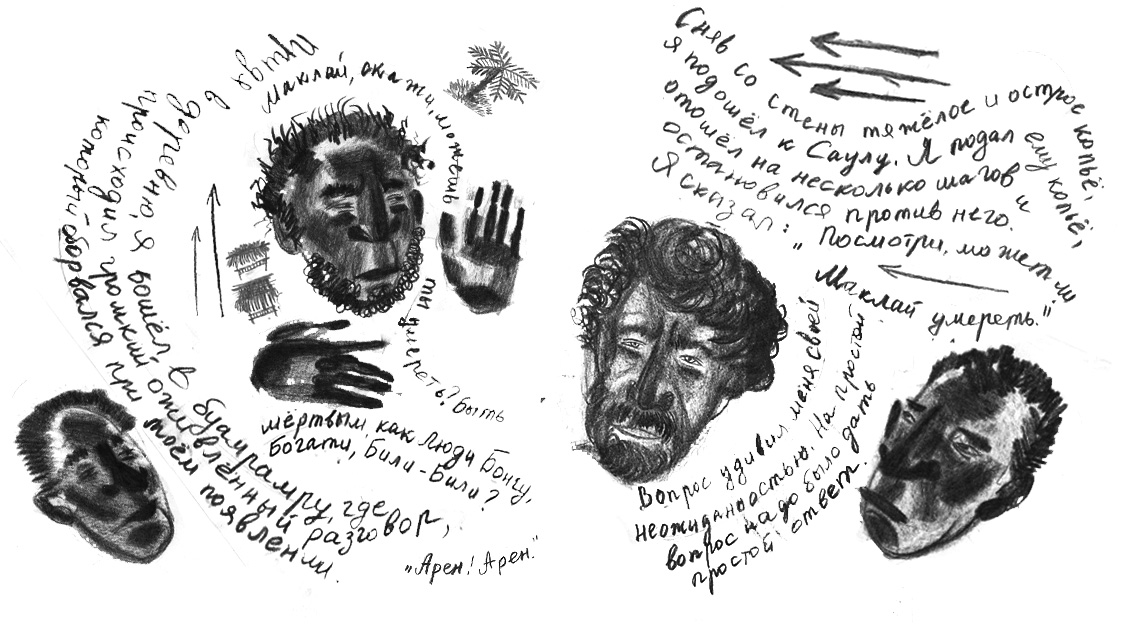 Придя
в
деревню, я вошёл в
буамрамру, где
происходил громкий оживлённый разговор,
который оборвался при моём появлении.
Маклай, скажи, можешь
ты умереть? Быть
мёртвым, как люди Бонгу,
Богати, Били-Били?
„Арен! Арен."
Сняв со стены тяжёлое и острое копьё,
я подошёл к Саулу. Я подал ему копьё,
отошёл на несколько шагов и
остановился против него.
Я сказал: „Посмотри, может ли
Маклай умереть."
Вопрос удивил меня своей
неожиданностью. На простой
вопрос надо было дать
простой ответ.